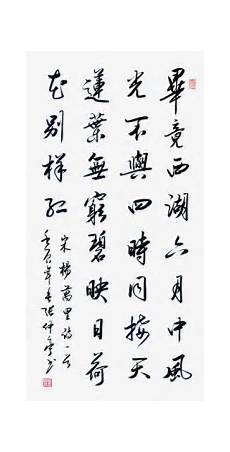 畢竟西湖六月中風
光不與四時同接天
蓮葉無窮碧映日荷
花別樣紅
宋楊萬里詩一首
壬辰年春張仲書